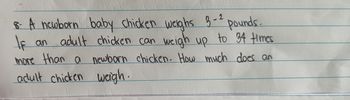 8. A newborn baby chicken weighs 3⁻² pounds.
If an adult chicken can weigh up to 34 times
more than a newborn chicken. How much does an
adult chicken weigh.